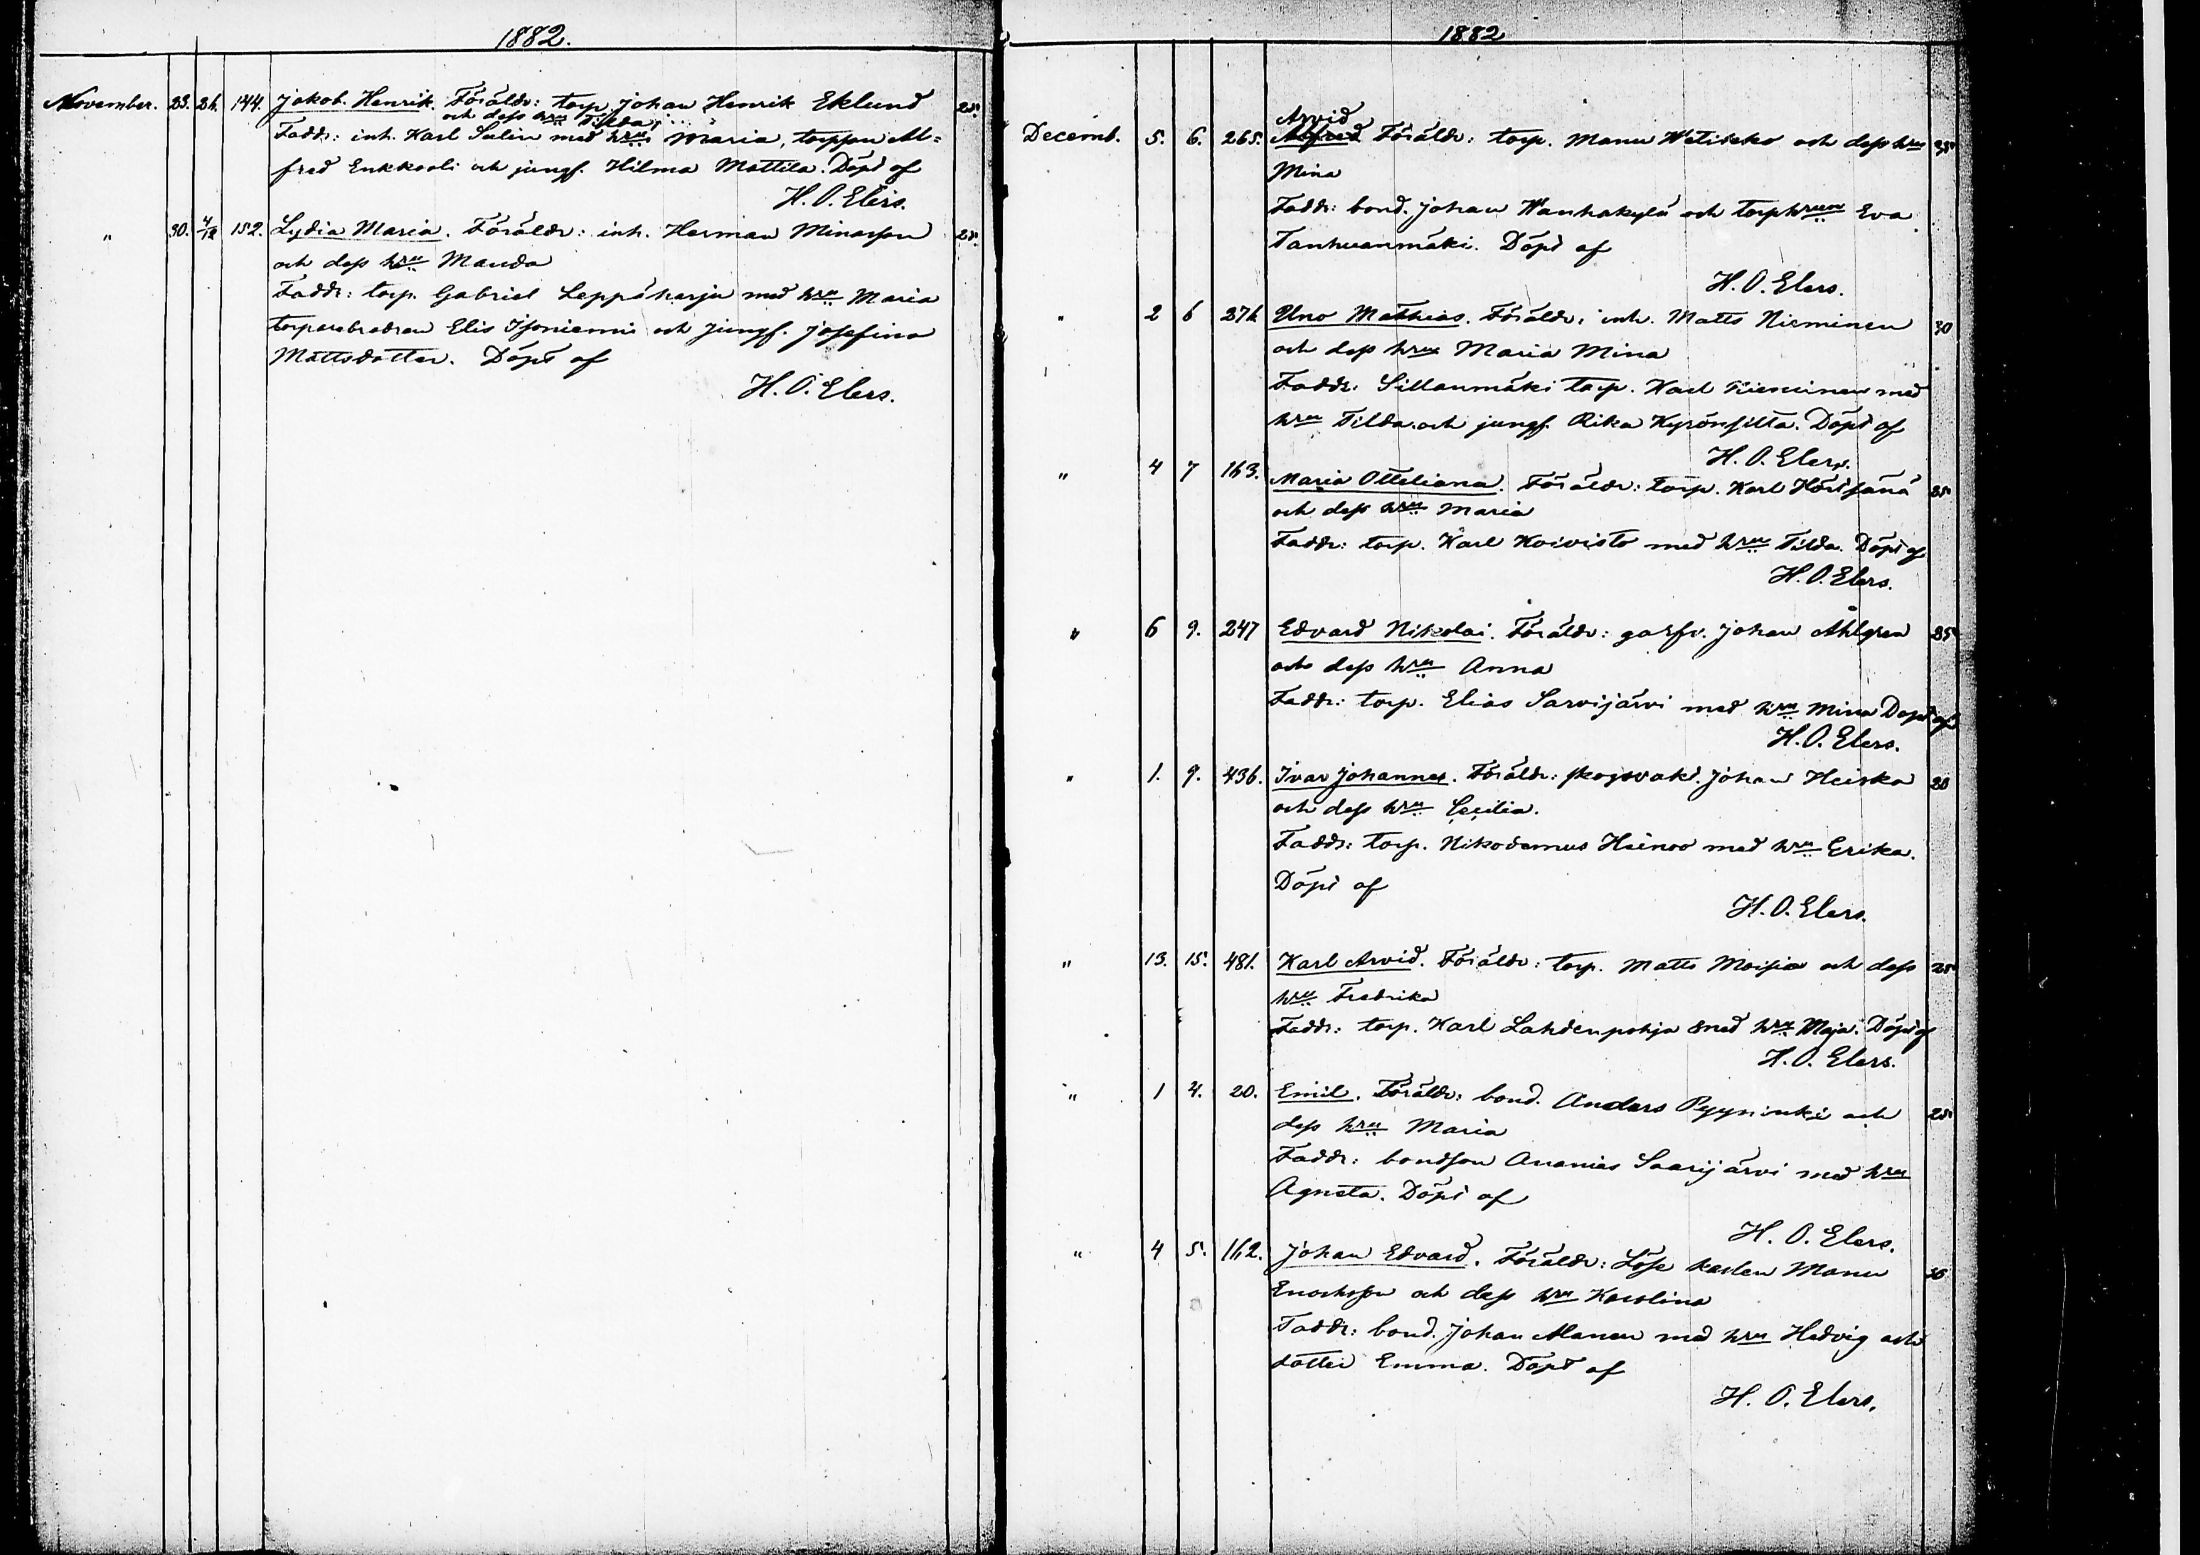 1882.
November. 23. 26. 144. Jakob Henrik. Föräldr: torp. Johan Henrik Eklund 25.
och dess hru Tilda
Faddr: inh. Karl Salin med hru Maria, torpson Al=
fred Enkkooli och jungf. Hilma Mattila. Döpt af
H. O. Elers.
" 30. 4/12 152. Lydia Maria. Föräldr: inh. Herman Minasson 28.
och dess hru Manda
Faddr: torp. Gabriel Leppäharju med hru Maria
torparebrodren Elis Isoniemi och jungf. Josefina
Mattsdotter. Döpt af
H. O. Elers.
1882
Arvid
Decemb. 5. 6. 265. Alfred Föräldr: torp. Manu Wetikko och dess hru 35
Mina
Faddr: bond. Johan Wanhakylä och torphrun Eva
Tanhuanmäki. Döpt af
H. O. Elers.
" 2 6 276 Uno Mathias. Föräldr: inh. Matts Nieminen 30
och dess hru Maria Mina
Faddr: Sillanmäki torp. Karl Nieminen med
hru Tilda och jungf. Rika Kyrönsilta. Döpt af
H. O. Elers.
" 4 7 163. Maria Otteliana. Föräldr: torp. Karl 35
och dess hru Maria
Faddr: torp. Karl Koivisto med hru Tilda. Döpt af
H. O. Elers.
" 6 9. 247 Edvard Nikolai. Föräldr: garfv. Johan Ahlgren 35
och dess hru Anna
Faddr: torp. Elias Sarvijärvi med hru Mina Döpt af
H. O. Elers.
" 1. 9. 436. Ivar Johannes. Föräldr: skogsvakt. Johan Heiska 20
och dess hru Cecilia.
Faddr: torp. Nikodemus Heinoo med hru Erika.
Döpt af
H. O. Elers.
" 13. 15. 481. Karl Arvid. Föräldr: torp. Matts Moisio och dess 25
hru Fredrika
Faddr: torp. Karl Lahdenpohja med hru Maja. Döpt af
H. O. Elers.
" 1 4. 20. Emil. Föräldr: bond. Anders Pyyninki och 25
dess hru Maria
Faddr: bondson Ananias Saarijärvi med hru
Agneta. Döpt af
H. O. Elers.
" 4 5. 162. Johan Edvard. Föräldr: Löse karlen Manu 36
Enochsson och dess hru Karolina
Faddr: bond. Johan Alanen med hru Hedvig och
dotter Emma. Döpt af
H. O. Elers.